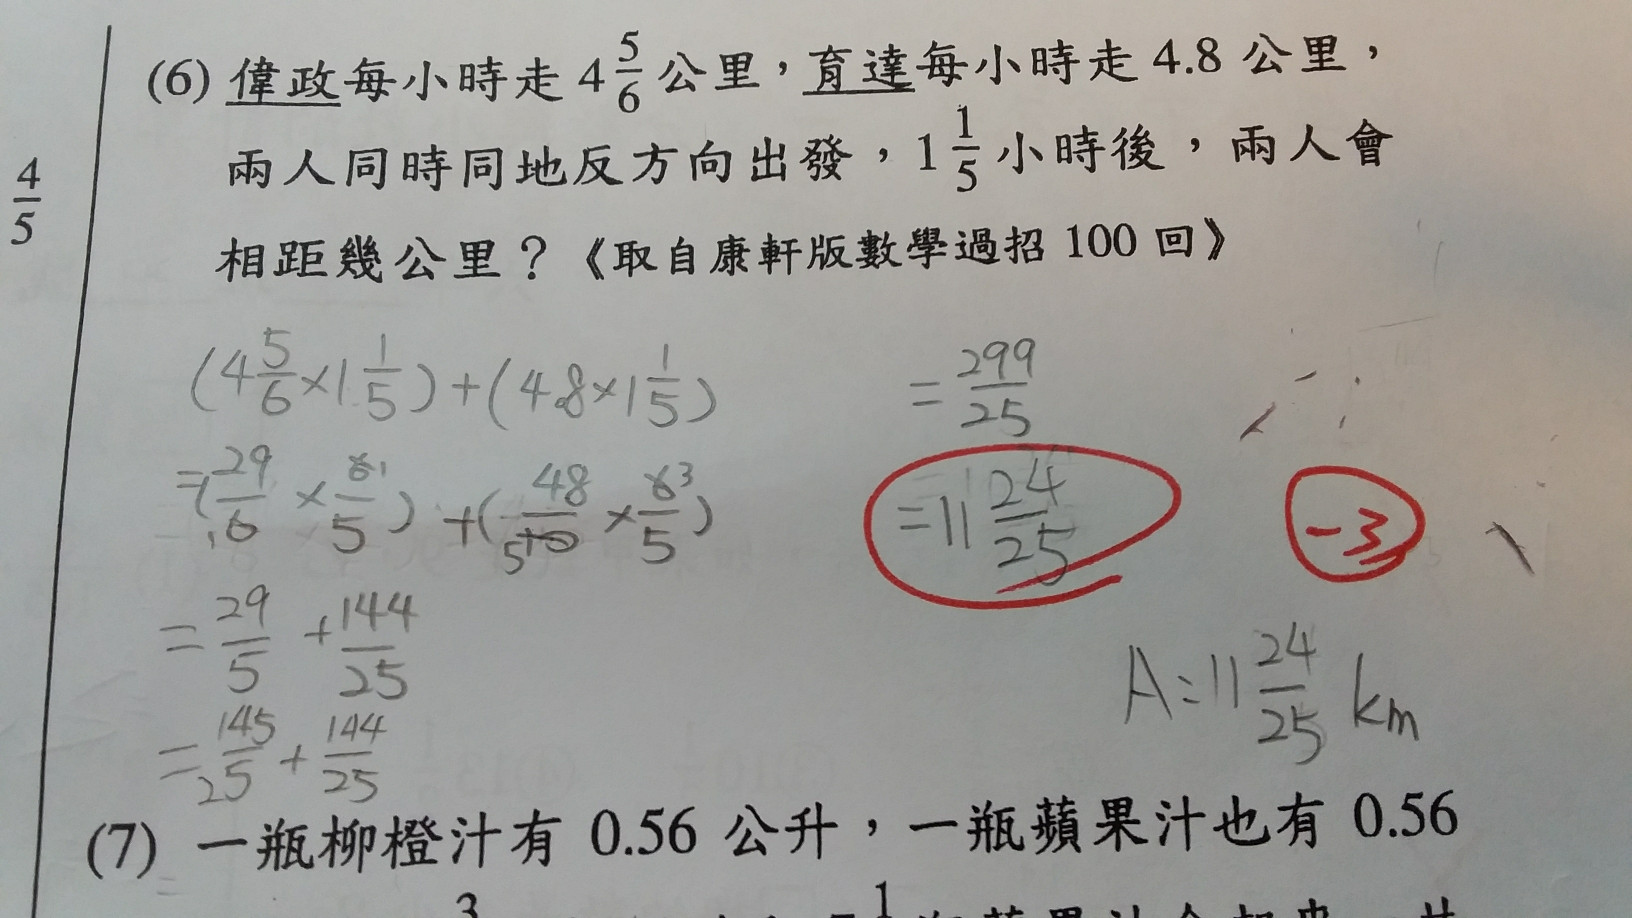 (6) 偉政每小時走 4 5/6 公里，育達每小時走 4.8 公里，
4/5
兩人同時同地反方向出發，1 1/5 小時後，兩人會
相距幾公里？《取自康軒版數學過招 100 回》
(4 5/6 × 1 1/5) + (4.8 × 1 1/5)
= (29/6 × 6/5) + (48/10 × 6/5)
= 29/5 + 144/25
= 145/25 + 144/25
= 299/25
= 11 24/25
-3
A = 11 24/25 km
(7) 一瓶柳橙汁有 0.56 公升，一瓶蘋果汁也有 0.56